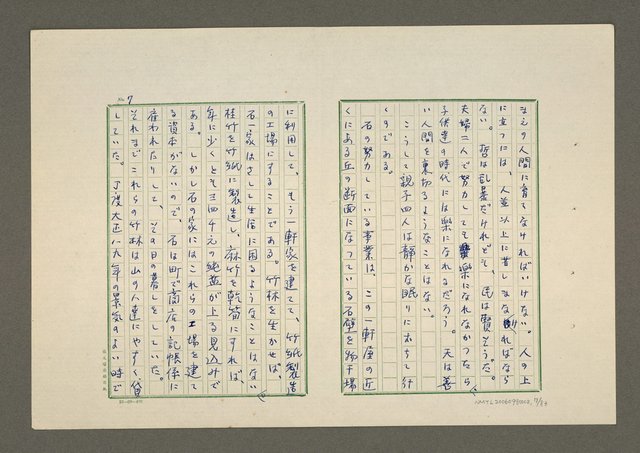 まえの人間に育てなければいけない。人の上
に立つには、人並以上に苦しまなければなら
ない。哲は乱暴だけれども、民は賢そうだ。
夫婦二人で努力しても楽になれなかったら、
子供達の時代には楽になれるだろう。天は善
い人間を裏切るようなことはない。
こうして親子四人は静かな眠りに落ちて行
くのである。
石の努力している事業は、この一軒屋の近
くにある丘の断面になっている石壁を物干場
No. 7
に利用して、もう一軒家を建てて、竹紙製造
の工場にすることである。竹林を生かせば、
石一家はさしし生活に困るようなことはない。
桂竹を竹紙に製造し、麻竹を乾筍にすれば、
年に少くとも三四千元の純益が上る見込みで
ある。しかし石の家にはこれらの工場を建て
る資本がないので、石は町で商店の記帳係に
雇われたりして、その日の暮しをしていた。
それまでこれらの竹林は山の人達にやすく貸
していた。丁度大正八九年の景気のよい時で